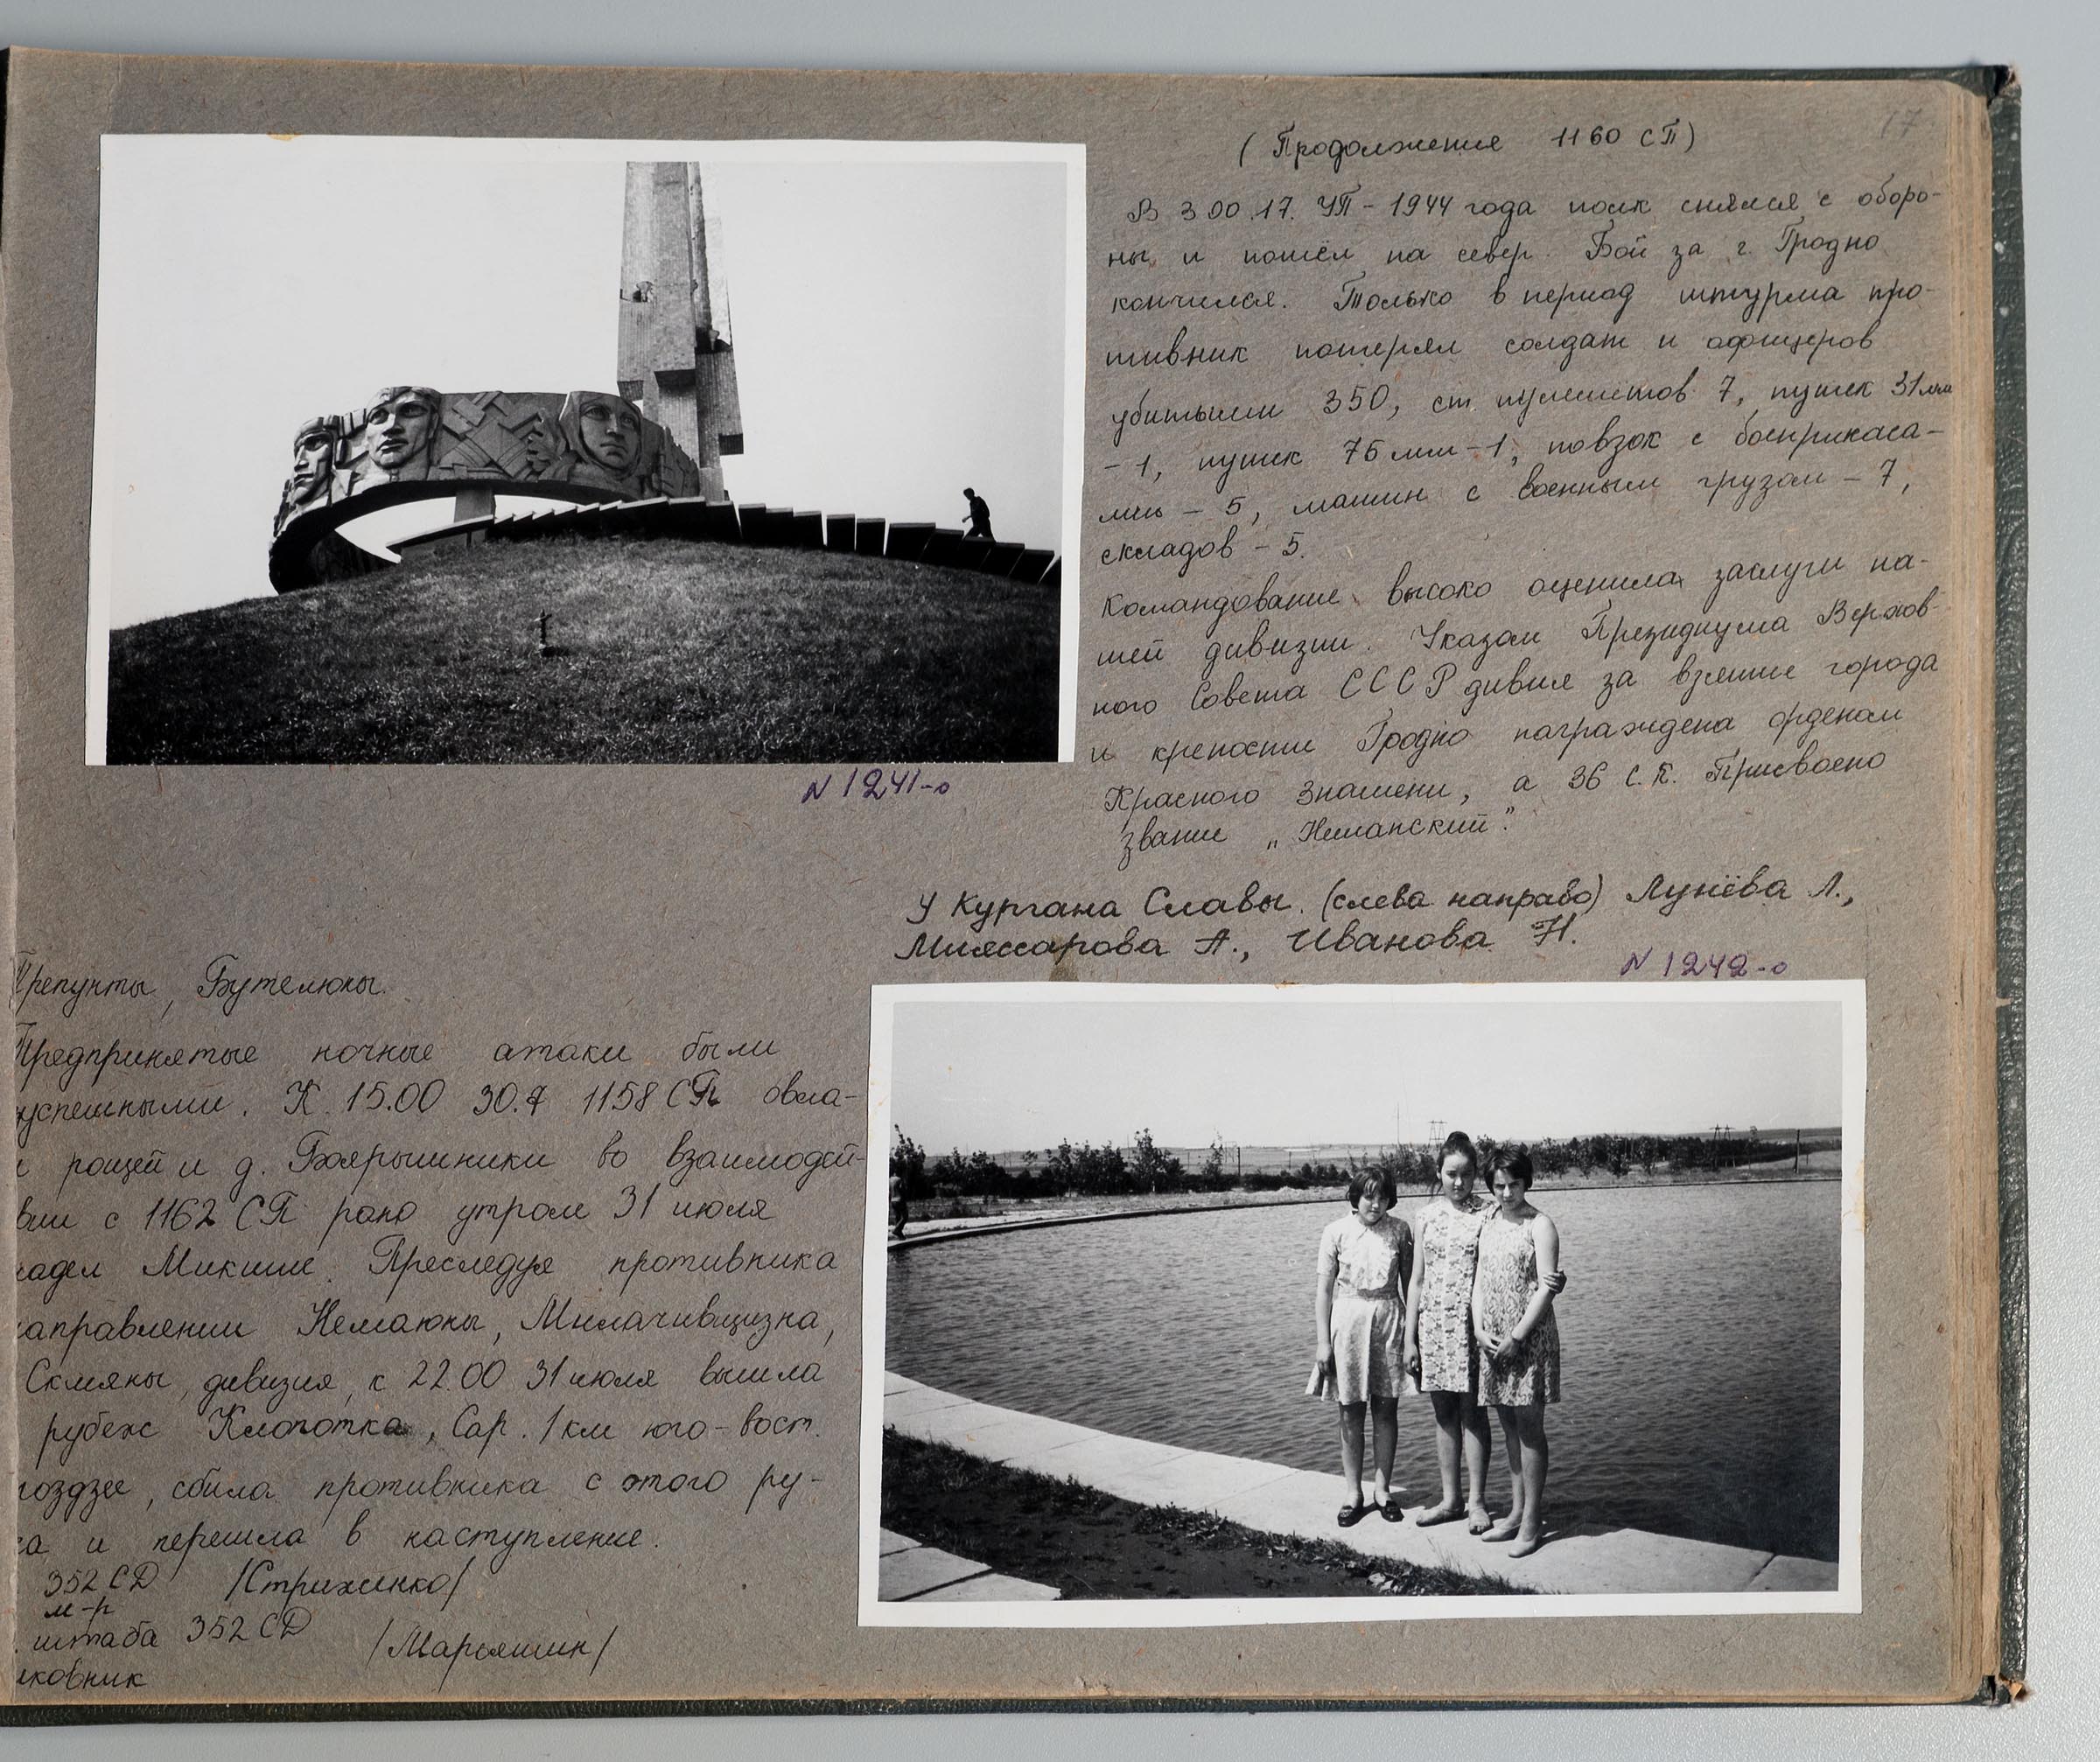 17
(Продолжение 1160 СП)
В 3 00 17. VII - 1944 года полк снялся с оборо-
ны и пошёл на север. Бой за г. Гродно
кончился. Только в период штурма про-
тивник потерял солдат и офицеров
убитыми 350, ст. пулемётов 7, пушек 31мм
- 1, пушек 75 мм - 1, повзок с боеприпаса-
ми - 5, машин с военным грузом - 7,
складов - 5.
Командование высоко оценила заслуги на-
шей дивизии. Указом Президиума Верхов-
ного Совета СССР дивия за взятие города
и крепости Гродно награждена орденом
Красного Знамени, а 36 С.К. Присвоено
звание „Неманский".
N 1241-о
У Кургана Славы. (слева направо) Лунёва Л.,
Миассарова А., Иванова Н.
N 1242-о
Трепунты, Бутелюны.
Предпринятые ночные атаки были
успешными. К 15.00 30.7 1158 СП овла-
рощей и д. Боярышники во взаимодей-
вии с 1162 СП рано утром 31 июля
ладел Микише. Преследуя противника
направлении Немаюны, Милачивщизна,
Скляны, дивизия, к 22.00 31 июля вышла
рубеж Клопотка, Сар. 1 км юго-вост.
гоздзее, сбила противника с этого ру-
а и перешла в наступление.
352 СД /Стриженко/
м-р
штаба 352 СД /Марьяшин/
ковник